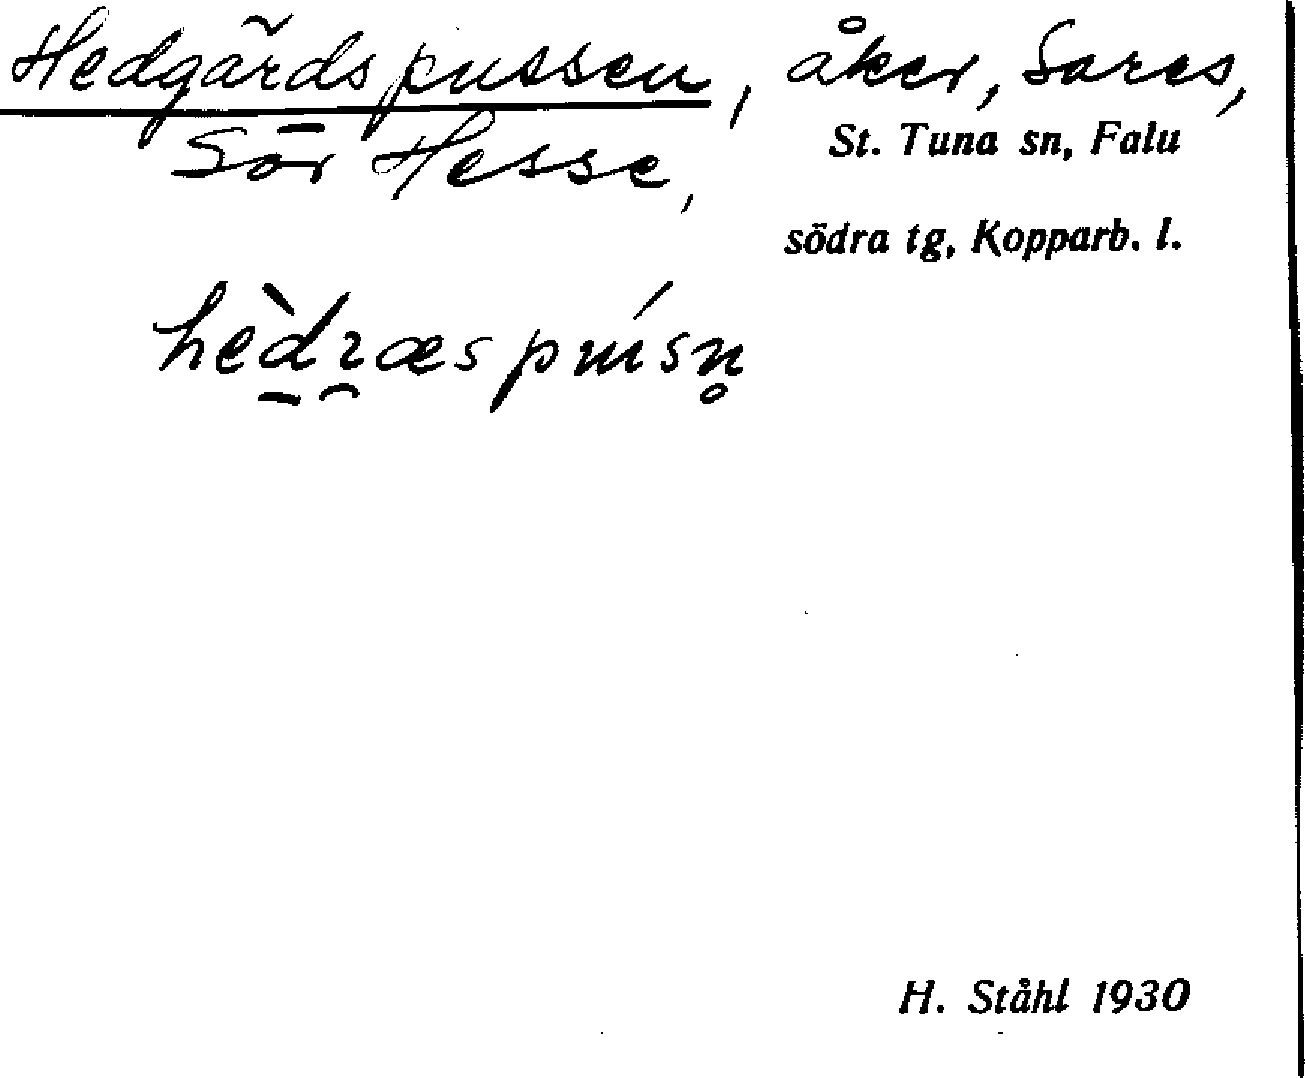 Hedgärdspussen, åker, Sares,
Sör Hesse,
St. Tuna sn, Falu
södra tg, Kopparb. l.
H. Ståhl 1930